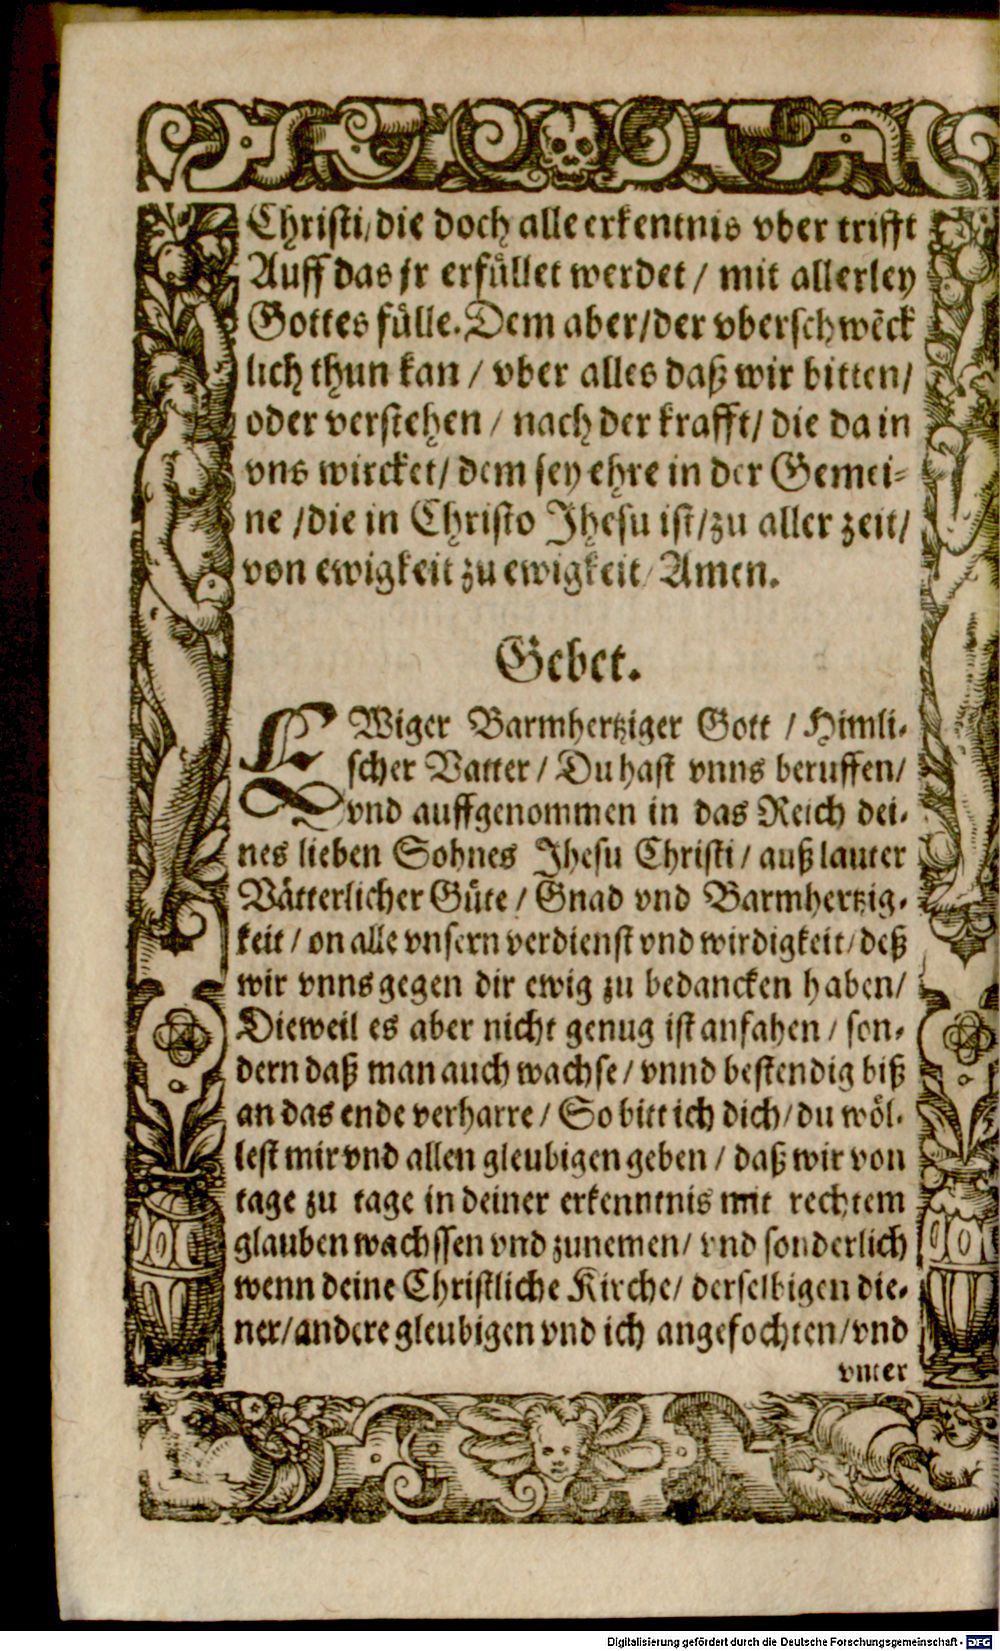 Christi/ die doch alle erkentnis vber trifft
Auff das jr erfüllet werdet / mit allerley
Gottes fülle. Dem aber/ der vberschwẽck
lich thun kan / vber alles daß wir bitten/
oder verstehen / nach der krafft/ die da in
vns wircket/ dem sey ehre in der Gemei-
ne /die in Christo Jhesu ist/ zu aller zeit/
von ewigkeit zu ewigkeit/ Amen.
Gebet.
EWiger Barmhertziger Gott / Himli-
scher Vatter / Du hast vnns beruffen/
vnd auffgenommen in das Reich dei-
nes lieben Sohnes Jhesu Christi / auß lauter
Vätterlicher Güte / Gnad vnd Barmhertzig-
keit / on alle vnsern verdienst vnd wirdigkeit/ deß
wir vnns gegen dir ewig zu bedancken haben/
Dieweil es aber nicht genug ist anfahen / son-
dern daß man auch wachse / vnnd bestendig biß
an das ende verharre / So bitt ich dich / du wöl-
lest mir vnd allen gleubigen geben / daß wir von
tage zu tage in deiner erkenntnis mit rechtem
glauben wachssen vnd zunemen/ vnd sonderlich
wenn deine Christliche Kirche/ derselbigen die-
ner/ andere gleubigen vnd ich angefochten/ vnd
vnter
Digitalisierung gefördert durch die Deutsche Forschungsgemeinschaft - DFG